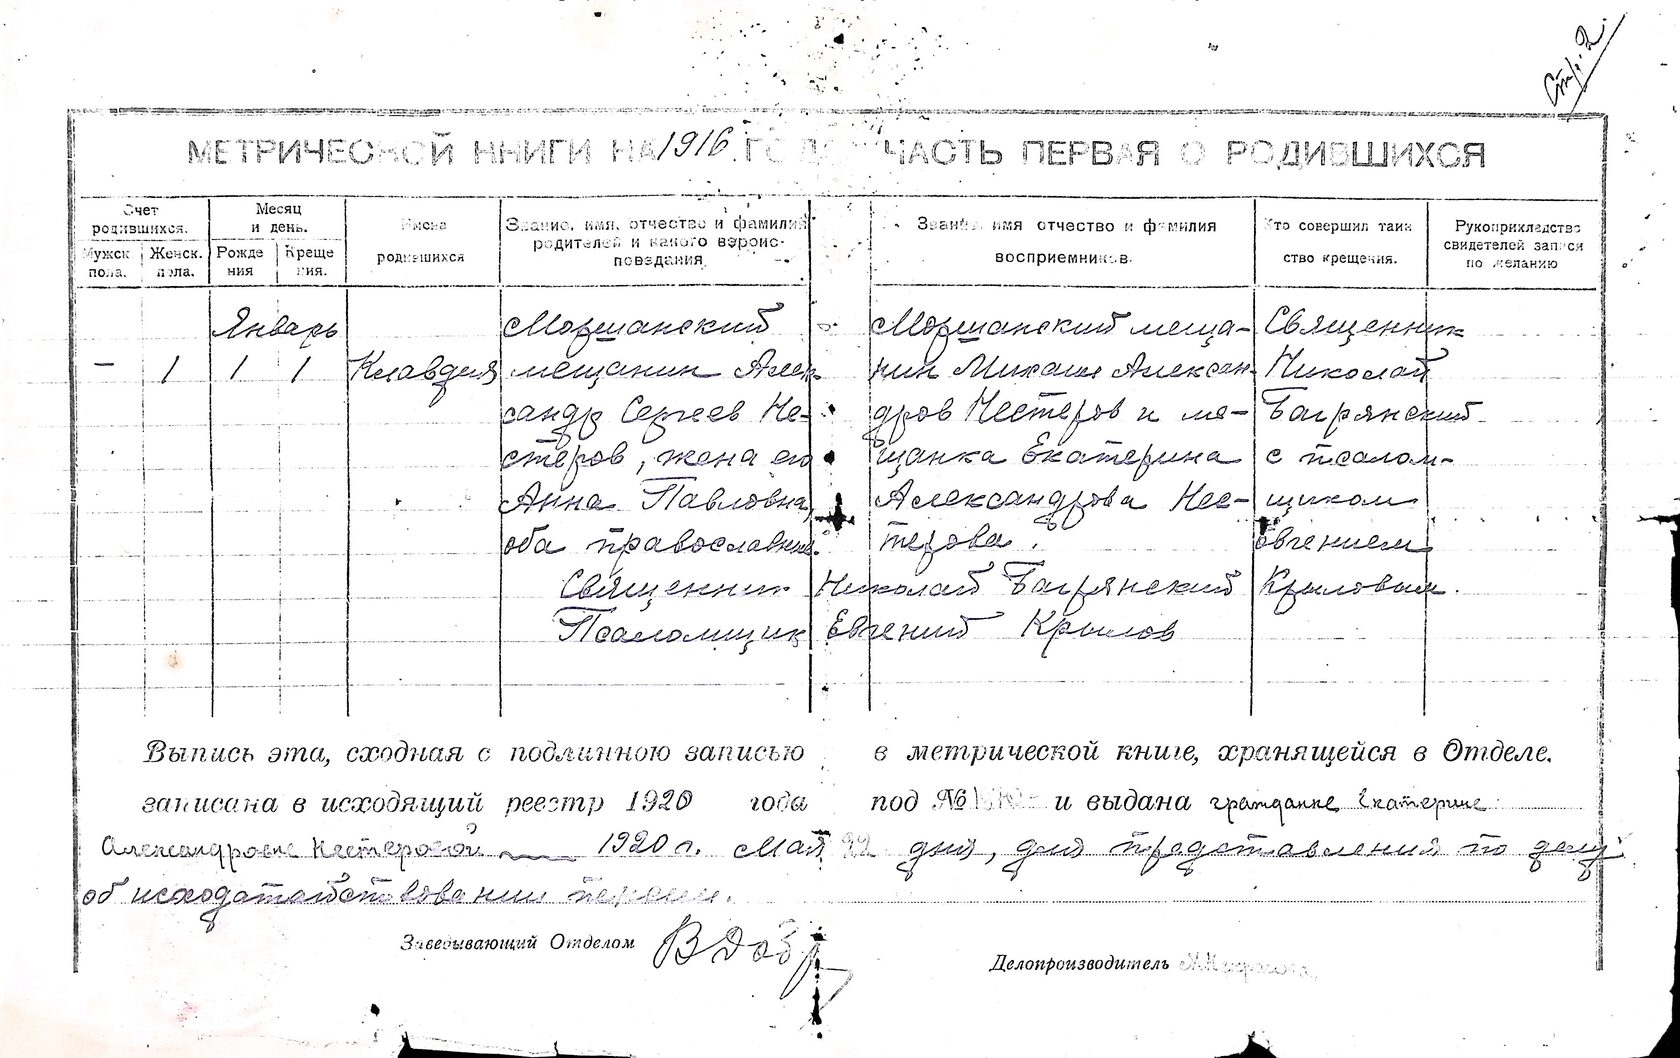 Стр. 2
МЕТРИЧЕСКОЙ КНИГИ НА 1916 ГОД ЧАСТЬ ПЕРВАЯ О РОДИВШИХСЯ
Счет родившихся.
Мужск пола.
Женск. пола.
Месяц и день.
Рожде ния
Креще ния.
Имена родившихся
Звание, имя, отчество и фамилия родителей и какого вероис- поведания
Звание, имя отчество и фамилия восприемников.
Кто совершил таин ство крещения.
Рукоприкледство свидетелей записи по желанию
Январь
— 1 1 1
Клавдия
Моршанский
мещанин Алек-
сандр Сергеев Не-
стеров, жена его
Анна Павловна,
оба православные.
Моршанский меща-
нин Михаил Алексан-
дров Нестеров и ме-
щанка Екатерина
Александрова Нес-
терова.
Священник
Николай
Багрянский
с псалом-
щиком
Евгением
Крыловым.
Священник Николай Багрянский
Псаломщик Евгений Крылов
Выпись эта, сходная с подлинною записью в метрической книге, хранящейся в Отделе.
записана в исходящий реестр 1920 года под № и выдана гражданке Екатерине
Александровне Нестеровой 1920 г. Мая 22 дня, для представления по делу
об исходатайствовании пенсии.
Заведывающий Отделом
Делопроизводитель